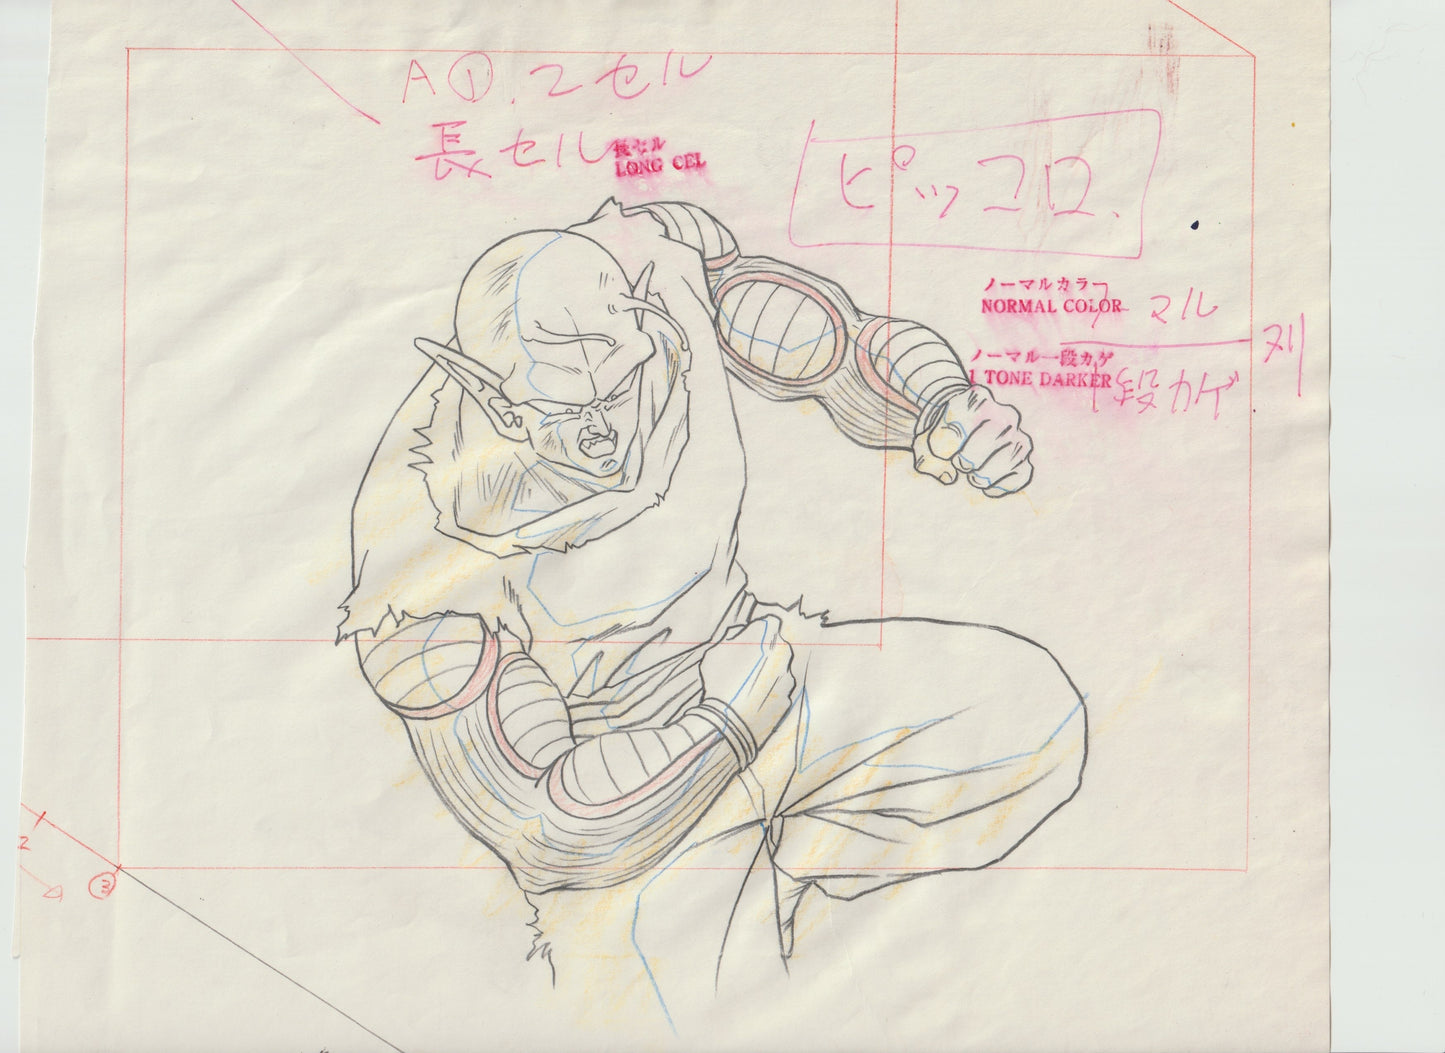 A① 2セル
長セル
長セル
LONG CEL
ピッコロ
ノーマルカラー
NORMAL COLOR
ノーマル
ヌリ
ノーマル一段カゲ
1 TONE DARKER
1段カゲ
2
③